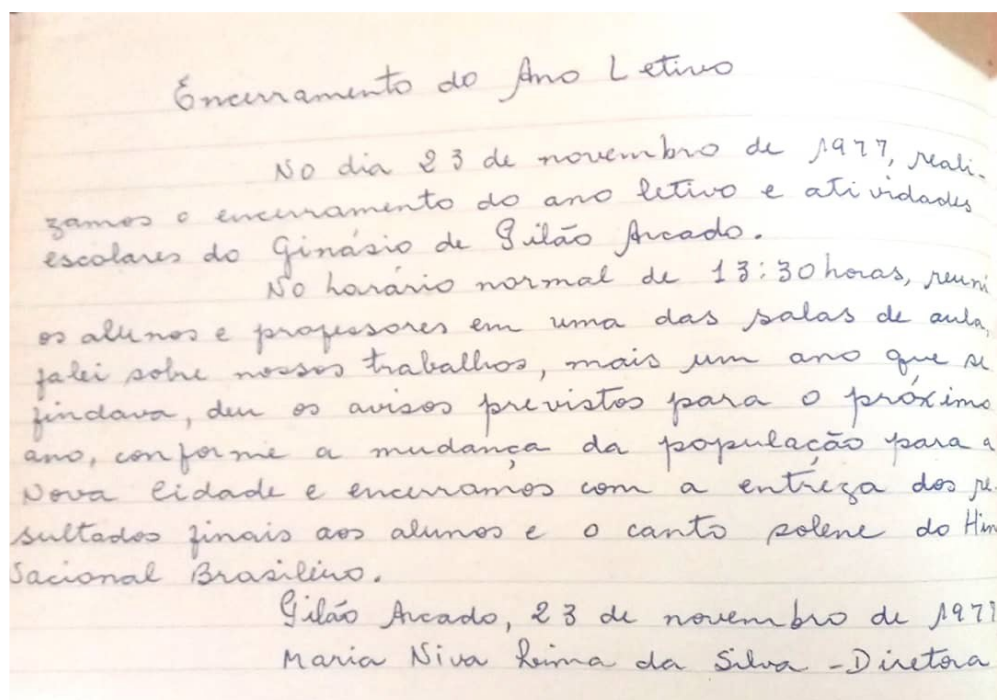 Encerramento do Ano Letivo
No dia 23 de novembro de 1977, reali-
zamos o encerramento do ano letivo e atividades
escolares do Ginásio de Pilão Arcado.
No horário normal de 13:30 horas, reuni
os alunos e professores em uma das salas de aula,
falei sobre nossos trabalhos, mais um ano que se
findava, deu os avisos previstos para o próximo
ano, conforme a mudança da população para a
Nova Cidade e encerramos com a entrega dos re-
sultados finais aos alunos e o canto solene do Hin
Nacional Brasileiro.
Pilão Arcado, 23 de novembro de 1977
Maria Niva Lima da Silva - Diretora